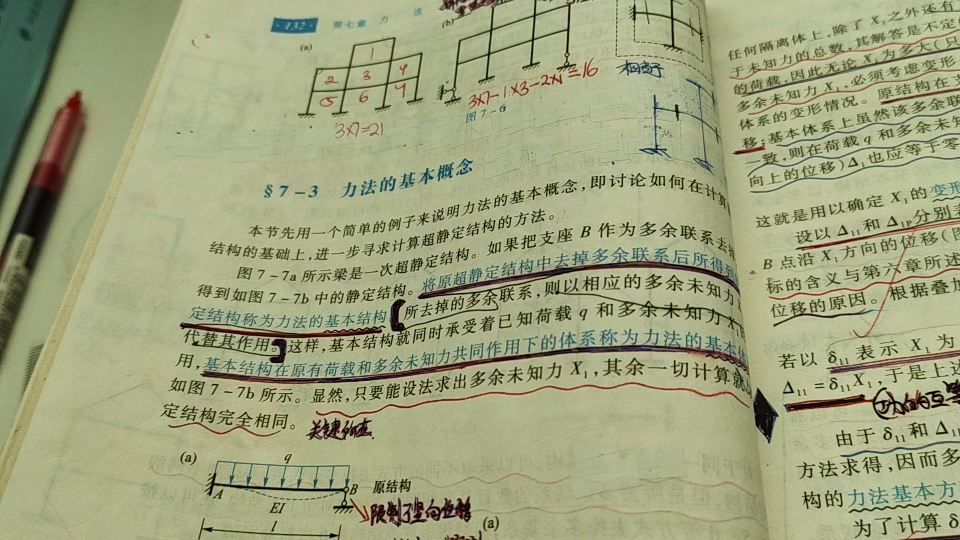 132 第七章 力 法
(a)
(b)
1
2 3 4
5 6 7
3×7=21
3×7-1×3-2×1=16
图 7-6
§7-3 力法的基本概念
本节先用一个简单的例子来说明力法的基本概念,即讨论如何在计算
结构的基础上,进一步寻求计算超静定结构的方法。
图 7-7a 所示梁是一次超静定结构。如果把支座 B 作为多余联系去
得到如图 7-7b 中的静定结构。将原超静定结构中去掉多余联系后所得
定结构称为力法的基本结构【所去掉的多余联系,则以相应的多余未知力
代替其作用。】这样,基本结构就同时承受着已知荷载 q 和多余未知力 X₁
用,基本结构在原有荷载和多余未知力共同作用下的体系称为力法的基本
如图 7-7b 所示。显然,只要能设法求出多余未知力 X₁,其余一切计算就
定结构完全相同。
(a)
q
A
B
原结构
EI
l
限制了竖向位移
(a)
任何隔离体上,除了 X₁ 之外还有
于未知力的总数,其解答是不定
的荷载,因此无论 X₁ 为多大(只
多余未知力 X₁,必须考虑变形
体系的变形情况。原结构在支
移;基本体系上虽然该多余联
一致,则在荷载 q 和多余未知
向上的位移)Δ₁ 也应等于零
这就是用以确定 X₁ 的变形
设以 Δ₁₁ 和 Δ₁P 分别
B 点沿 X₁ 方向的位移(图
标的含义与第六章所述
位移的原因。根据叠加
若以 δ₁₁ 表示 X₁ 为
Δ₁₁=δ₁₁X₁,于是上述
由于 δ₁₁ 和 Δ₁P
方法求得,因而多
构的力法基本方
为了计算 δ